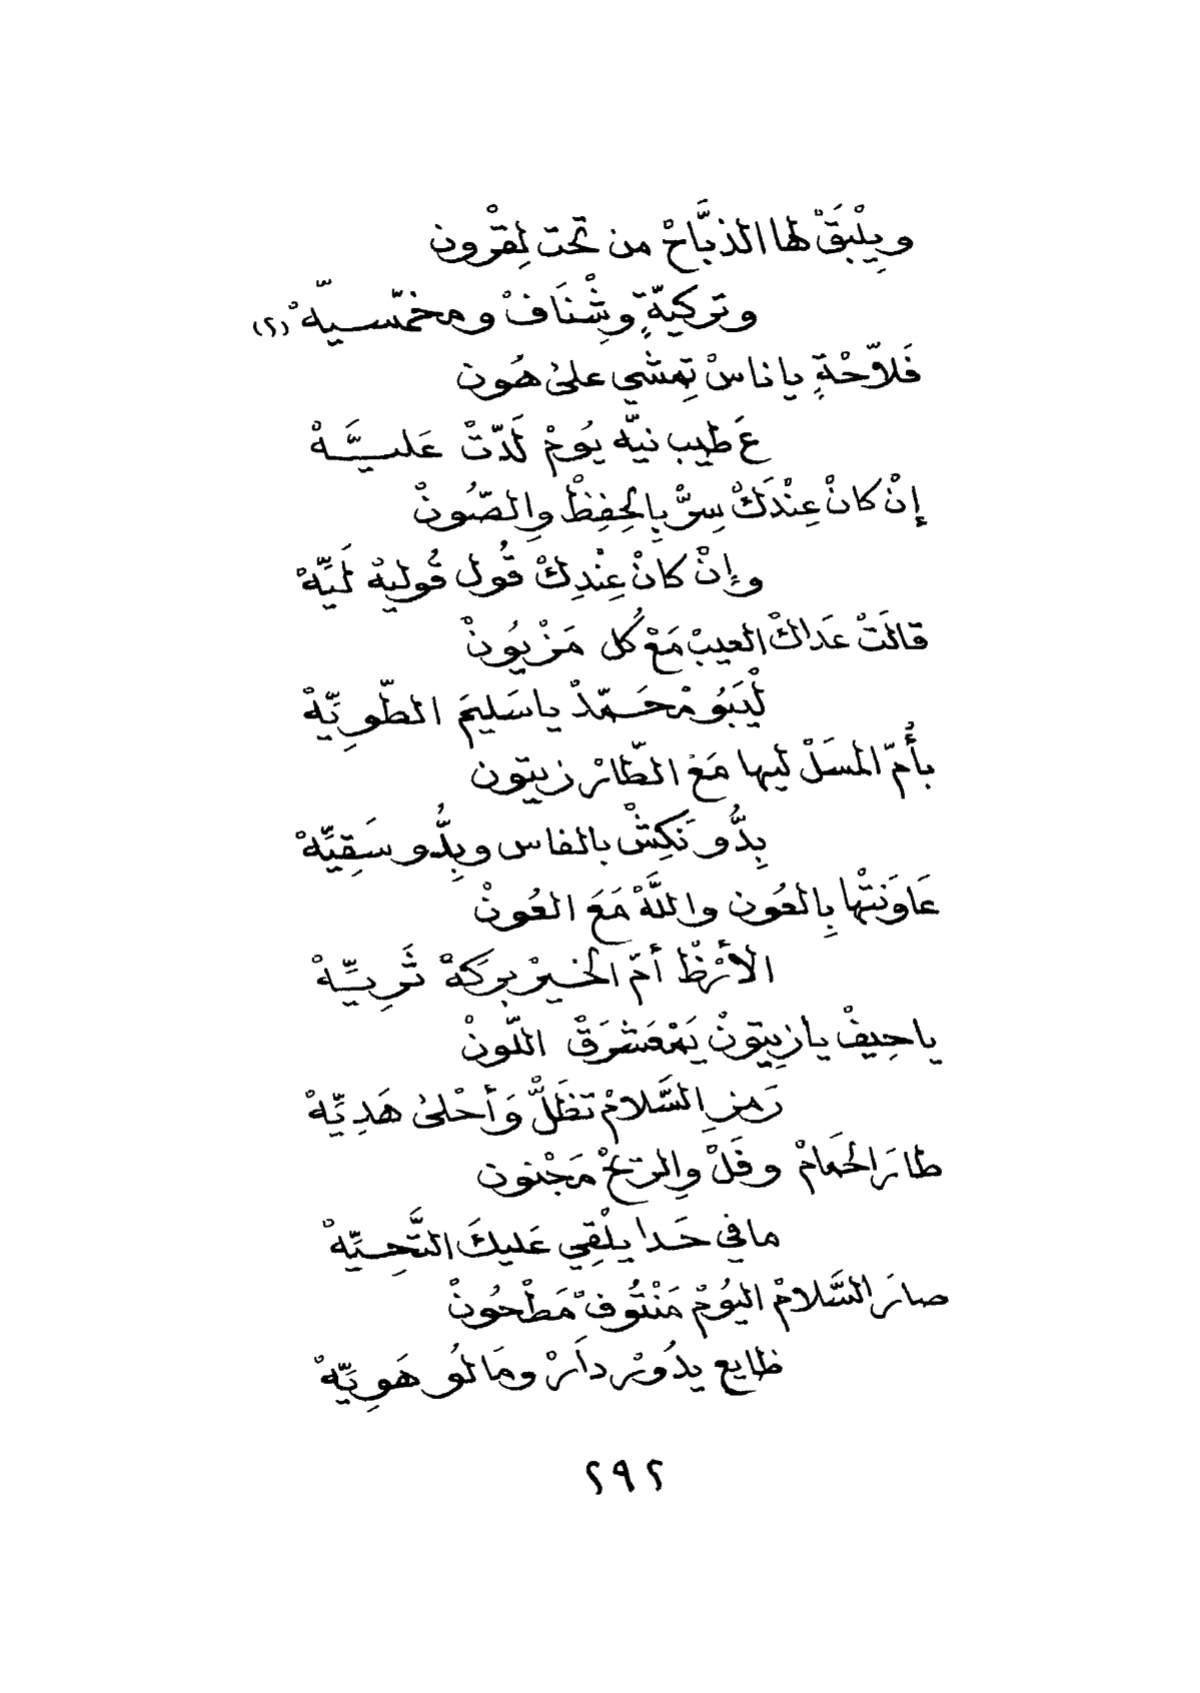 ويِلْبَقْ لها الذبَّاحْ من تحت لِقْرون
وتركيّةٍ وشِْنَافْ ومخمّسيّهْ (٢)
فَلاّحْةٍ يا ناسْ تِمشي على هُون
عَ طيب نيَّه يُومْ لَدّتْ عَليَّهْ
إنْ كانْ عِنْدَكْ سِرّْ بِالحِفِظْ والصّونْ
وإنْ كانْ عِنْدِكْ قُول قُوليهْ لَيِّهْ
قالَتْ عَداكْ العيبْ مَعْ كُل مَزْيُونْ
لْيَبُو مْحَمّدْ يا سَليمَ الطّوِيِّهْ
بأُمّ المسَلْ ليها مَعْ الطّائرْ زيتون
بِدُّو نَكِشْ بالفاس وبِدُّو سَقِيِّهْ
عَاوَنتْها بِالعُون واللَّهْ مَعَ العُونْ
الأرْظْ أمّ الخيرْ بركَهْ ثَرِيِّهْ
يا حِيفْ يا زِيتونْ يَمْعَشرَقْ اللّونْ
رَمزِ السَّلامْ تظَلّْ وَأحْلىْ هَدِيِّهْ
طارَ الحَمَامْ وفَلْ والرّيحْ مَجْنون
مافي حَدا يلْقِي عَليكَ التَّحِيِّهْ
صارَ السَّلامْ اليُومْ مَنْتُوفْ مَطْحُونْ
ظايع يدُورْ دارْ ومَالُو هَوِيِّهْ
٢٩٢